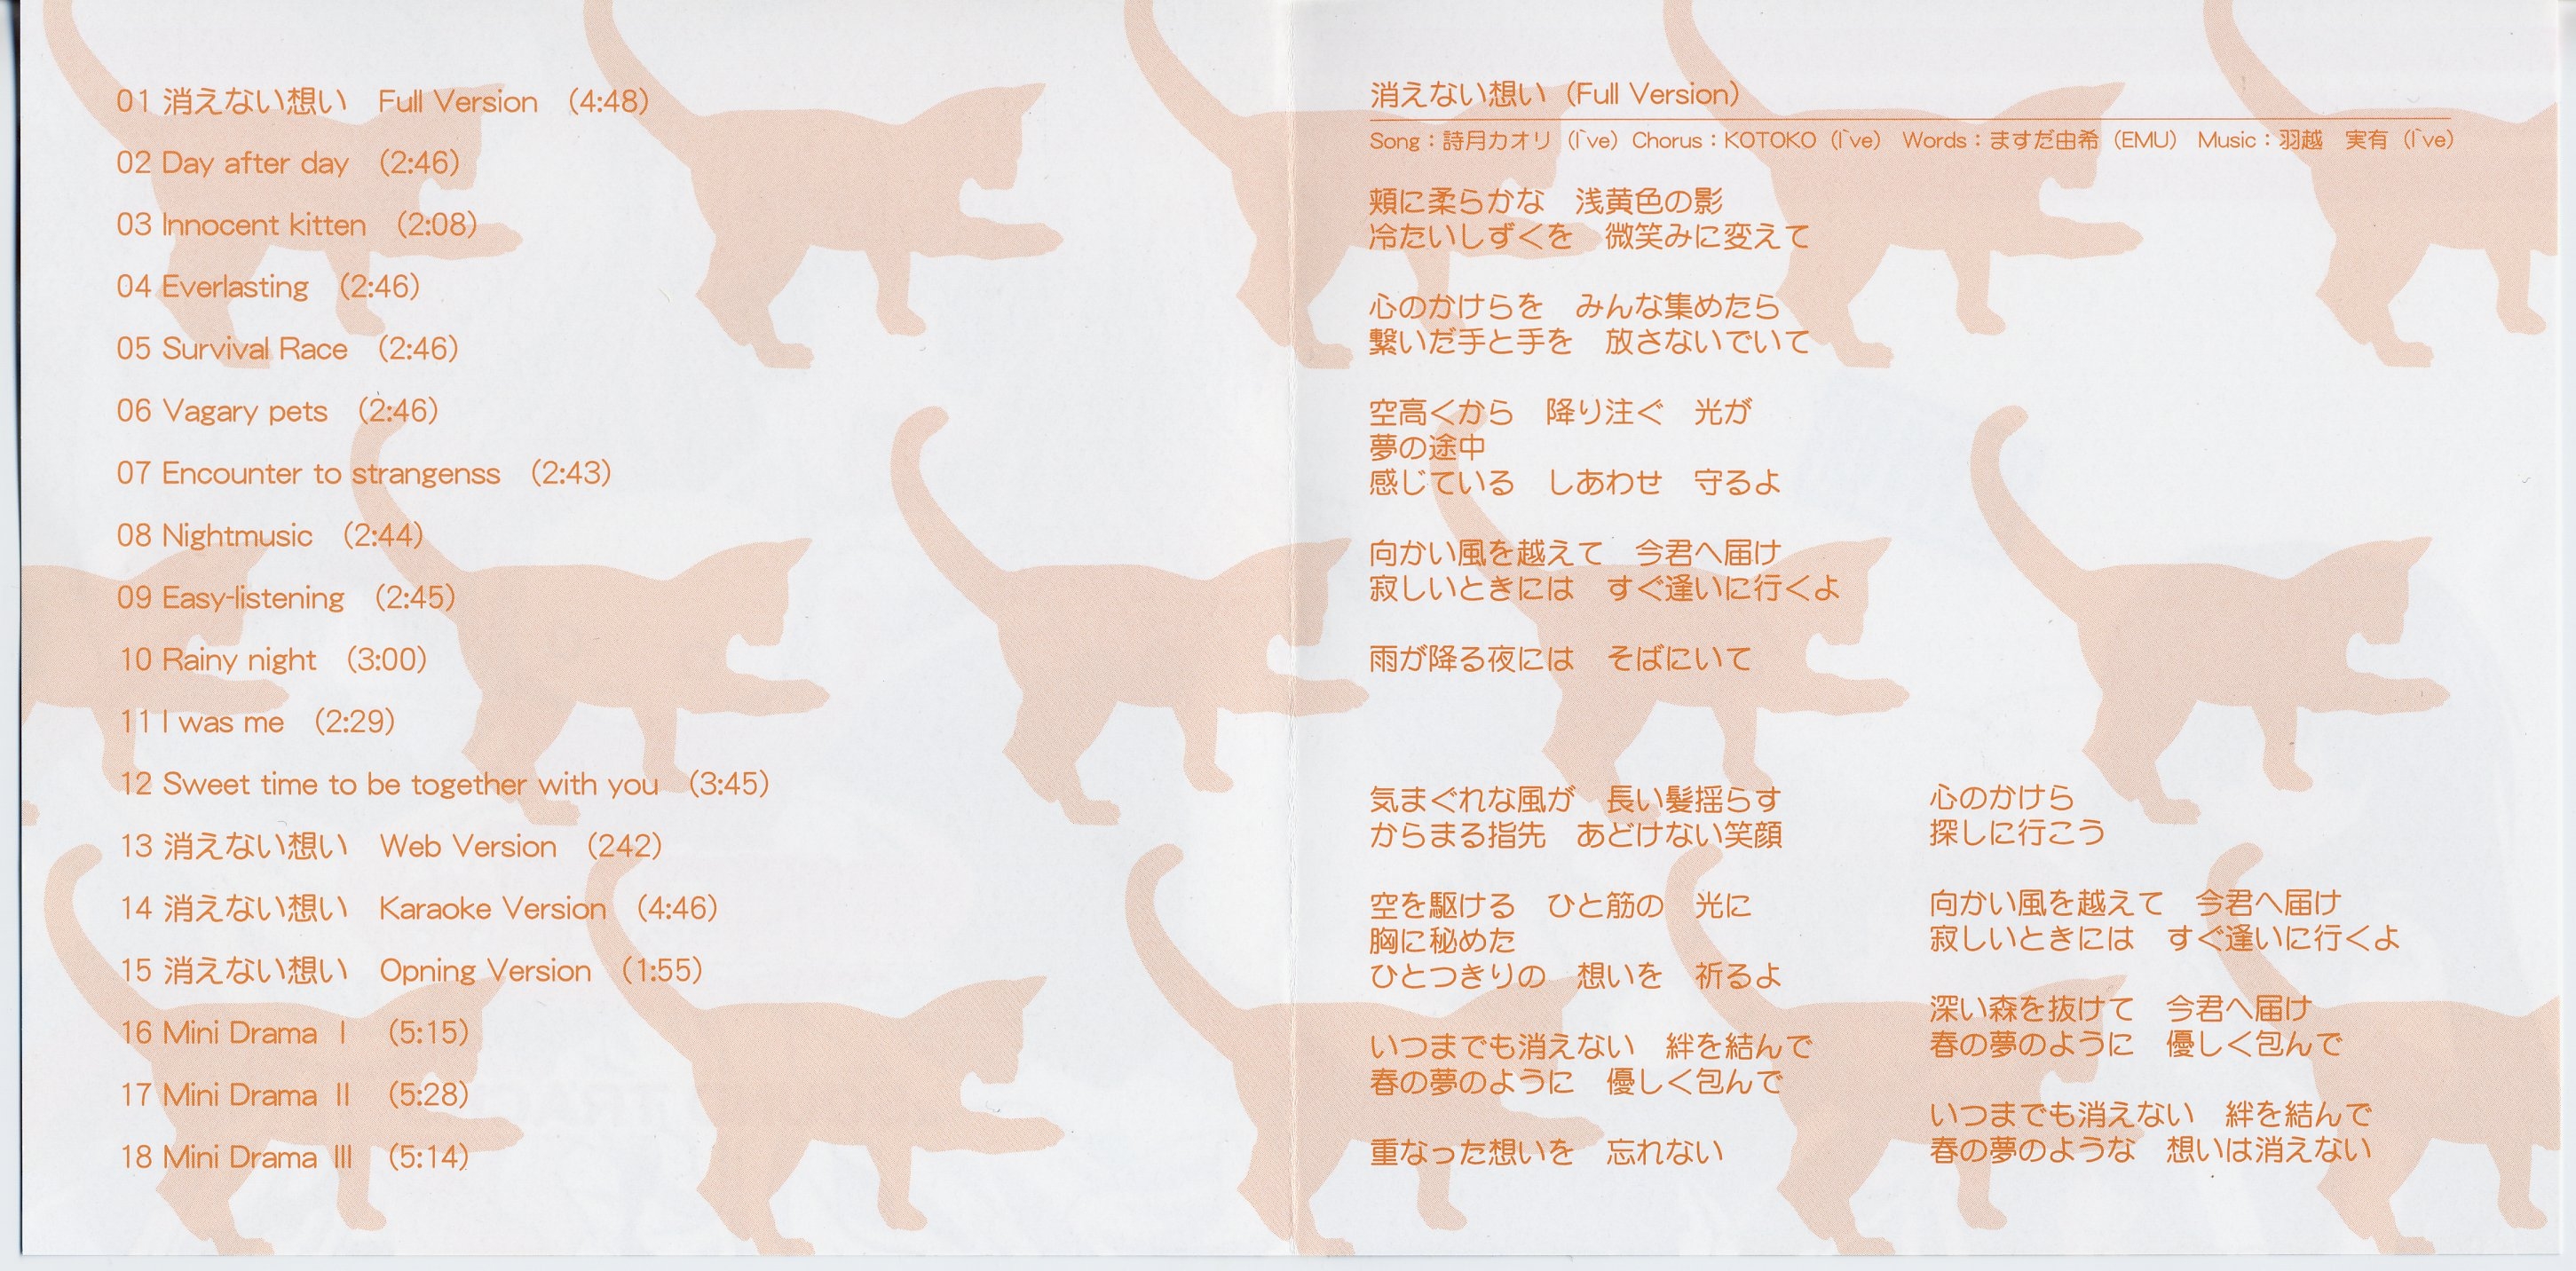 01 消えない想い　Full Version　(4:48)
02 Day after day　(2:46)
03 Innocent kitten　(2:08)
04 Everlasting　(2:46)
05 Survival Race　(2:46)
06 Vagary pets　(2:46)
07 Encounter to strangenss　(2:43)
08 Nightmusic　(2:44)
09 Easy-listening　(2:45)
10 Rainy night　(3:00)
11 I was me　(2:29)
12 Sweet time to be together with you　(3:45)
13 消えない想い　Web Version　(242)
14 消えない想い　Karaoke Version　(4:46)
15 消えない想い　Opning Version　(1:55)
16 Mini Drama Ⅰ　(5:15)
17 Mini Drama Ⅱ　(5:28)
18 Mini Drama Ⅲ　(5:14)
消えない想い (Full Version)
Song：詩月カオリ (I`ve) Chorus：KOTOKO (I`ve)　Words：ますだ由希 (EMU)　Music：羽越　実有 (I`ve)
頬に柔らかな　浅黄色の影
冷たいしずくを　微笑みに変えて
心のかけらを　みんな集めたら
繋いだ手と手を　放さないでいて
空高くから　降り注ぐ　光が
夢の途中
感じている　しあわせ　守るよ
向かい風を越えて　今君へ届け
寂しいときには　すぐ逢いに行くよ
雨が降る夜には　そばにいて
気まぐれな風が　長い髪揺らす
からまる指先　あどけない笑顔
空を駆ける　ひと筋の　光に
胸に秘めた
ひとつきりの　想いを　祈るよ
いつまでも消えない　絆を結んで
春の夢のように　優しく包んで
重なった想いを　忘れない
心のかけら
探しに行こう
向かい風を越えて　今君へ届け
寂しいときには　すぐ逢いに行くよ
深い森を抜けて　今君へ届け
春の夢のように　優しく包んで
いつまでも消えない　絆を結んで
春の夢のような　想いは消えない